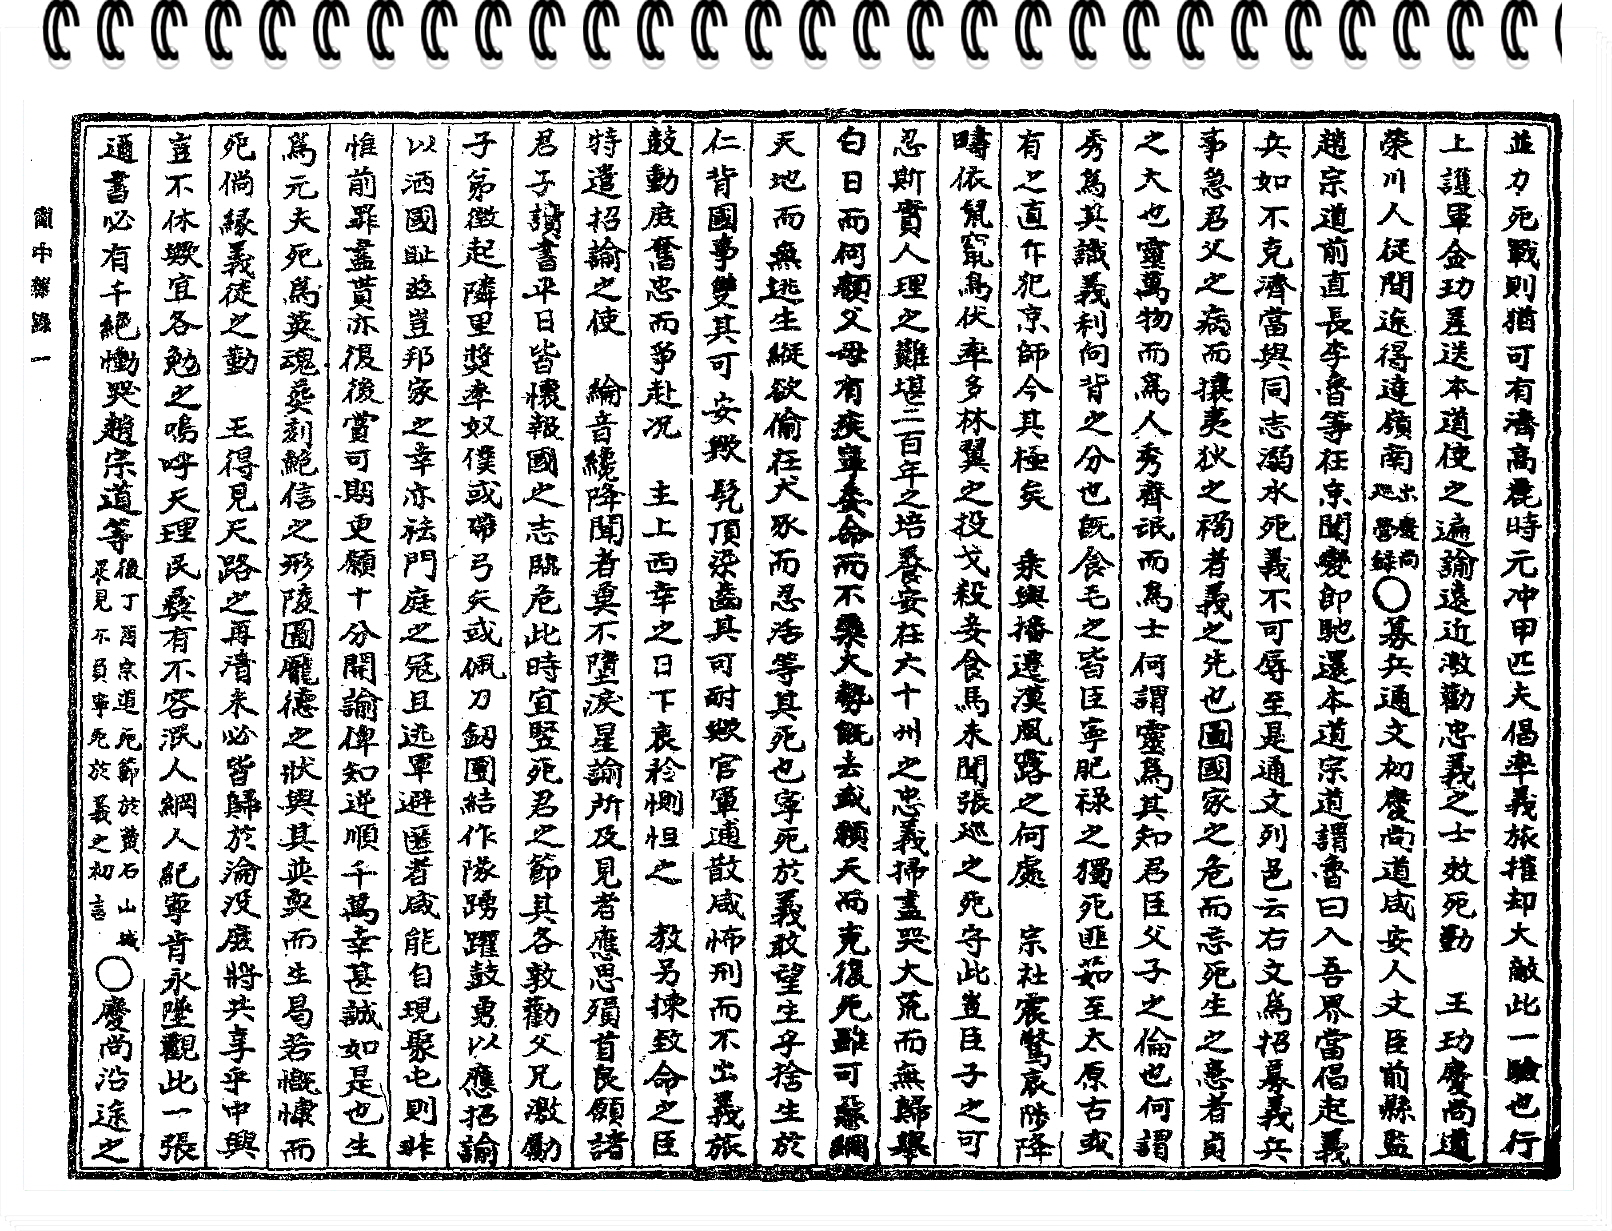 並力死戰則猶可有濟高麗時元冲甲匹夫倡率義旅摧却大敵此一驗也行
上護軍金功屋送本道使之遍諭遠近激勸忠義之士效死勤 王功慶尚道
榮川人從間途得達嶺南出慶尚巡營錄○募兵通文初慶尚道咸安人文臣前縣監
趙宗道前直長李魯等在京聞變即馳還本道宗道謂魯曰入吾界當倡起義
兵如不克濟當與同志溺水死義不可辱至是通文列邑云右文爲招募義兵
事急君父之病而攘夷狄之禍者義之先也圖國家之危而忘死生之患者貞
之大也靈萬物而爲人秀齊氓而爲士何謂靈爲其知君臣父子之倫也何謂
秀爲其識義利向背之分也旣食毛之皆臣寧肥祿之獨死匪茹至太原古或
有之直作犯京師今其極矣 乘輿播遷漢風露之何處 宗社震驚哀陟降
疇依鼠竄鳥伏率多林翼之投戈殺妾食馬未聞張巡之死守此豈臣子之可
忍斯實人理之難堪二百年之培養安在六十州之忠義掃盡哭大荒而無歸擧
白日而何顔父母有疾寧委命而不藥大勢旣去或賴天而克復死雖可惡綱
天地而無逃生縱欲偷在犬豕而忍活等其死也寧死於義敢望生乎捨生於
仁背國事讐其可安歟髡頂染齒其可耐歟官軍逋散咸怖刑而不出義旅
鼓動庶奮忠而爭赴况 主上西幸之日下哀矜惻怛之 教另揀致命之臣
特遣招諭之使 綸音纔降聞者莫不墮淚星諭所及見者應思殞首良願諸
君子讀書平日皆懷報國之志臨危此時宜竪死君之節其各敦勸父兄激勵
子弟徵起隣里奬率奴僕或帶弓矢或佩刀劒團結作隊踴躍鼓勇以應招諭
以洒國耻玆豈邦家之幸亦祛門庭之寇且逃軍避匿者咸能自現聚屯則非
惟前罪盡貰亦復後賞可期更願十分開諭俾知逆順千萬幸甚誠如是也生
爲元夫死爲英魂葵刻絶信之形陵圖麗德之狀與其並耎而生曷若慨慷而
死倘緣義徒之勤 王得見天路之再淸來必皆歸於淪没庶將共享乎中興
豈不休歟宜各勉之嗚呼天理民彜有不容泯人綱人紀寧肯永墜觀此一張
通書必有千絶慟哭趙宗道等後丁酉宗道死節於黄石山城果見不負寧死於義之初言○慶尚沿途之
亂中雜錄一